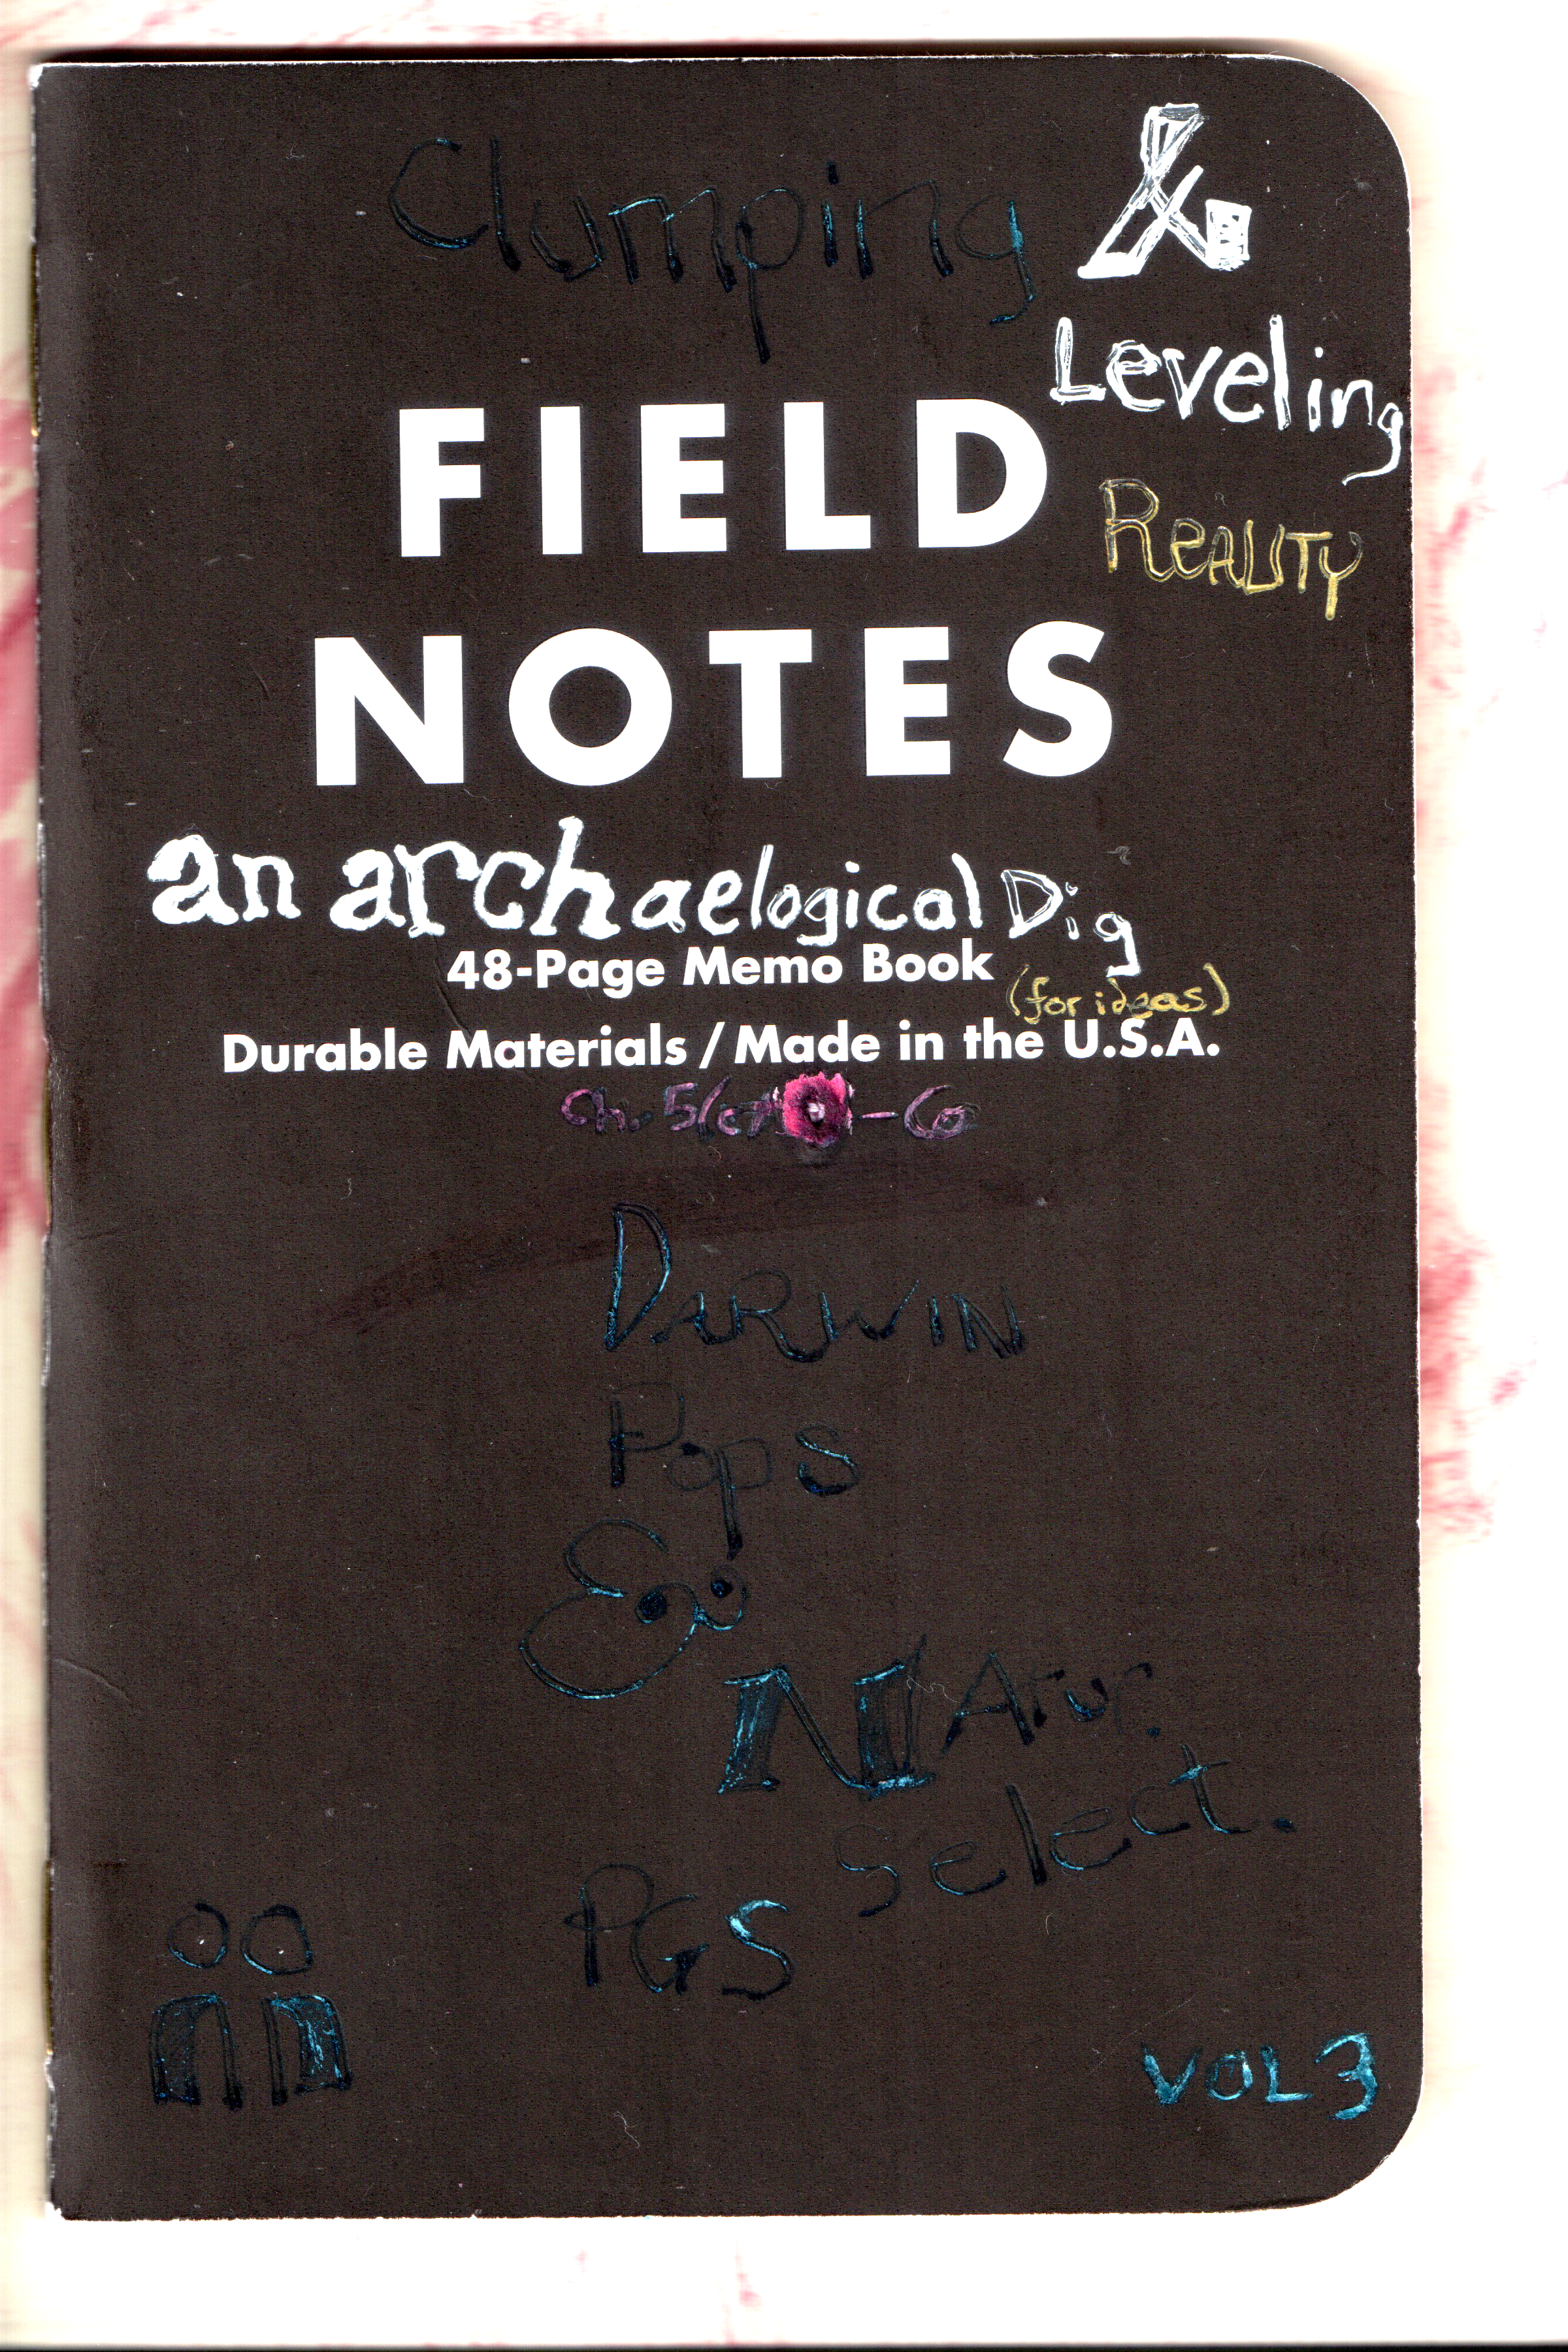 Clumping &
Leveling
FIELD
REALITY
NOTES
an archaelogical Dig
48-Page Memo Book
(for ideas)
Durable Materials / Made in the U.S.A.
Ch. 5
DARWIN
Pops
&
NATUR.
Select.
PGS
VOL 3